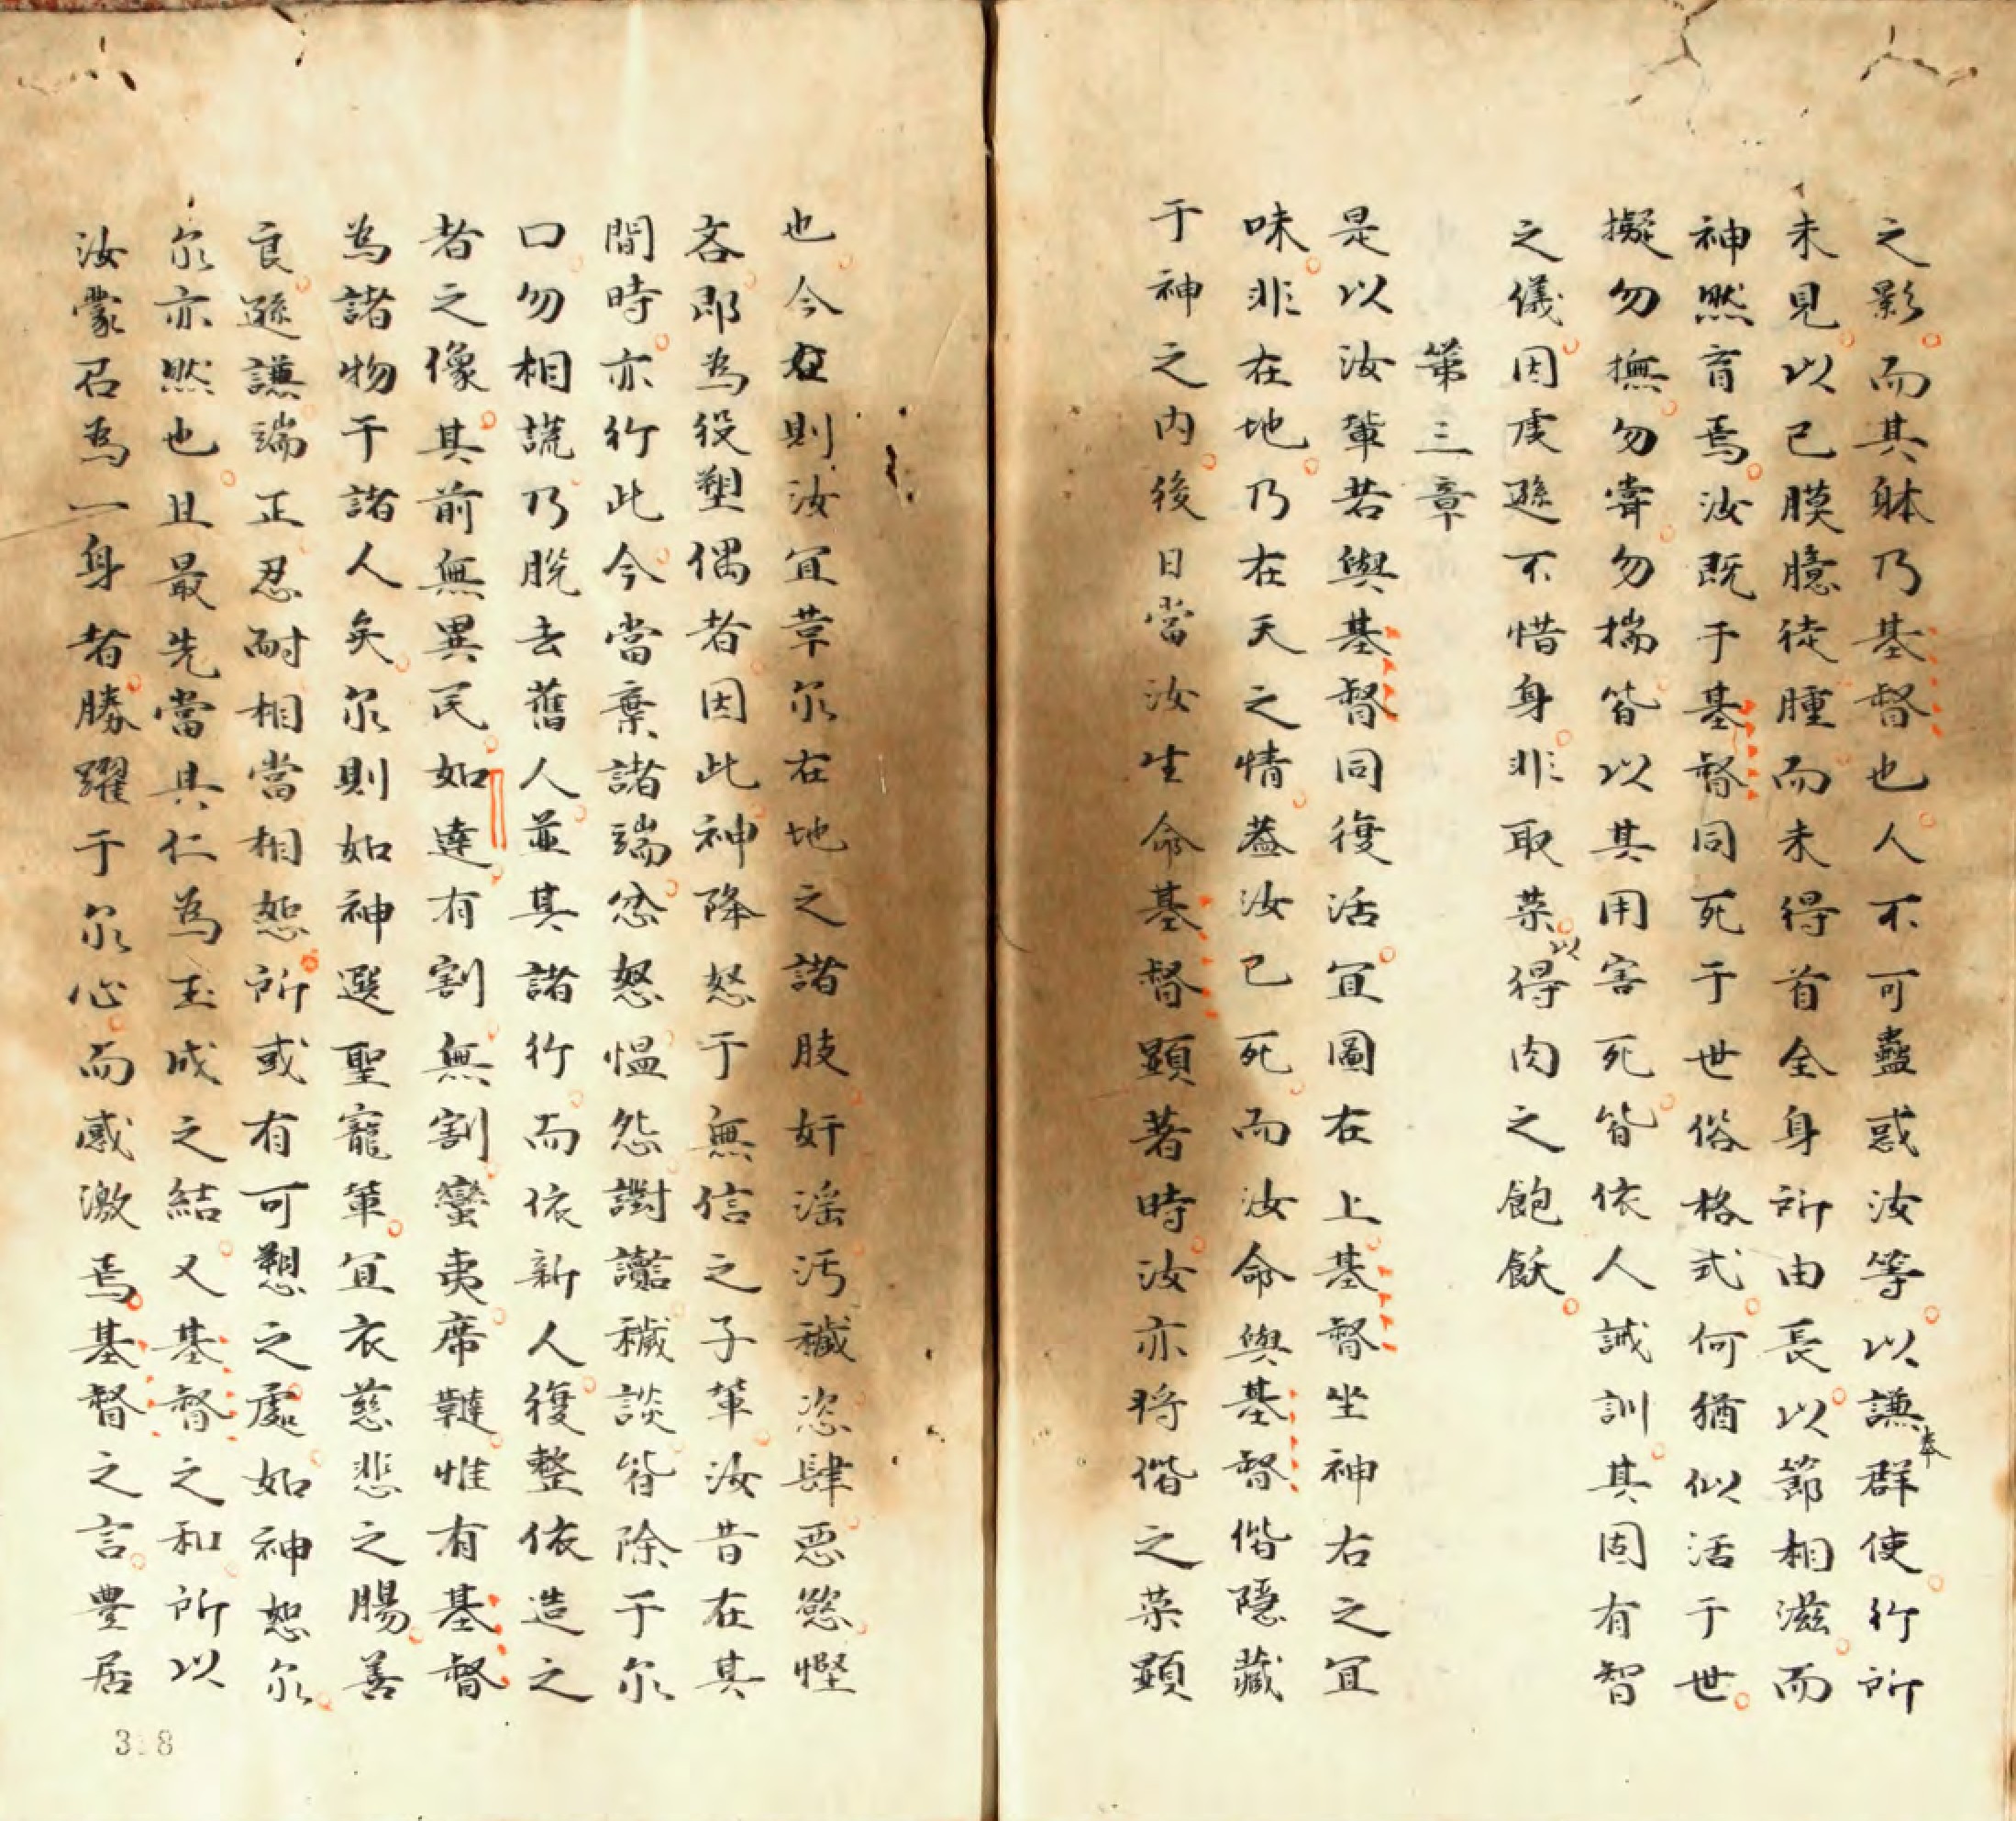 之影而其躰乃基督也人不可蠱惑汝等以謙奉群使行所
未見以己膜臆徒腫而未得首全身所由長以節相滋而
神然育焉汝既于基督同死于世俗格式何猶似活于世
擬勿撫勿嘗勿揣皆以其用害死皆依人誡訓其固有智
之儀因虔遜不惜身非取榮以得肉之飽飫
第三章
是以汝輩若與基督同復活宜圖在上基督坐神右之宜
味非在地乃在天之情葢汝已死而汝命與基督偕隱藏
于神之内後日當汝生命基督顯著時汝亦将偕之榮顯
也今在則汝宜草尔在地之諸肢奸滛汚穢恣肆恶慾慳
吝即為役塑偶者因此神降怒于無信之子輩汝昔在其
間時亦行此今當棄諸端忿怒愠怨讟穢談皆除于尔
口勿相謊乃脫去舊人並其諸行而依新人復整依造之
者之像其前無異民如達有割無割蠻夷席韃惟有基督
為諸物于諸人矣尔則如神選聖寵輩宜衣慈悲之腸善
良遜謙端正忍耐相當相恕所或有可愬之處如神恕尔
尔亦然也且最先當具仁為玉成之結又基督之和所以
汝蒙召為一身者勝躍于尔心而感激焉基督之言豊居